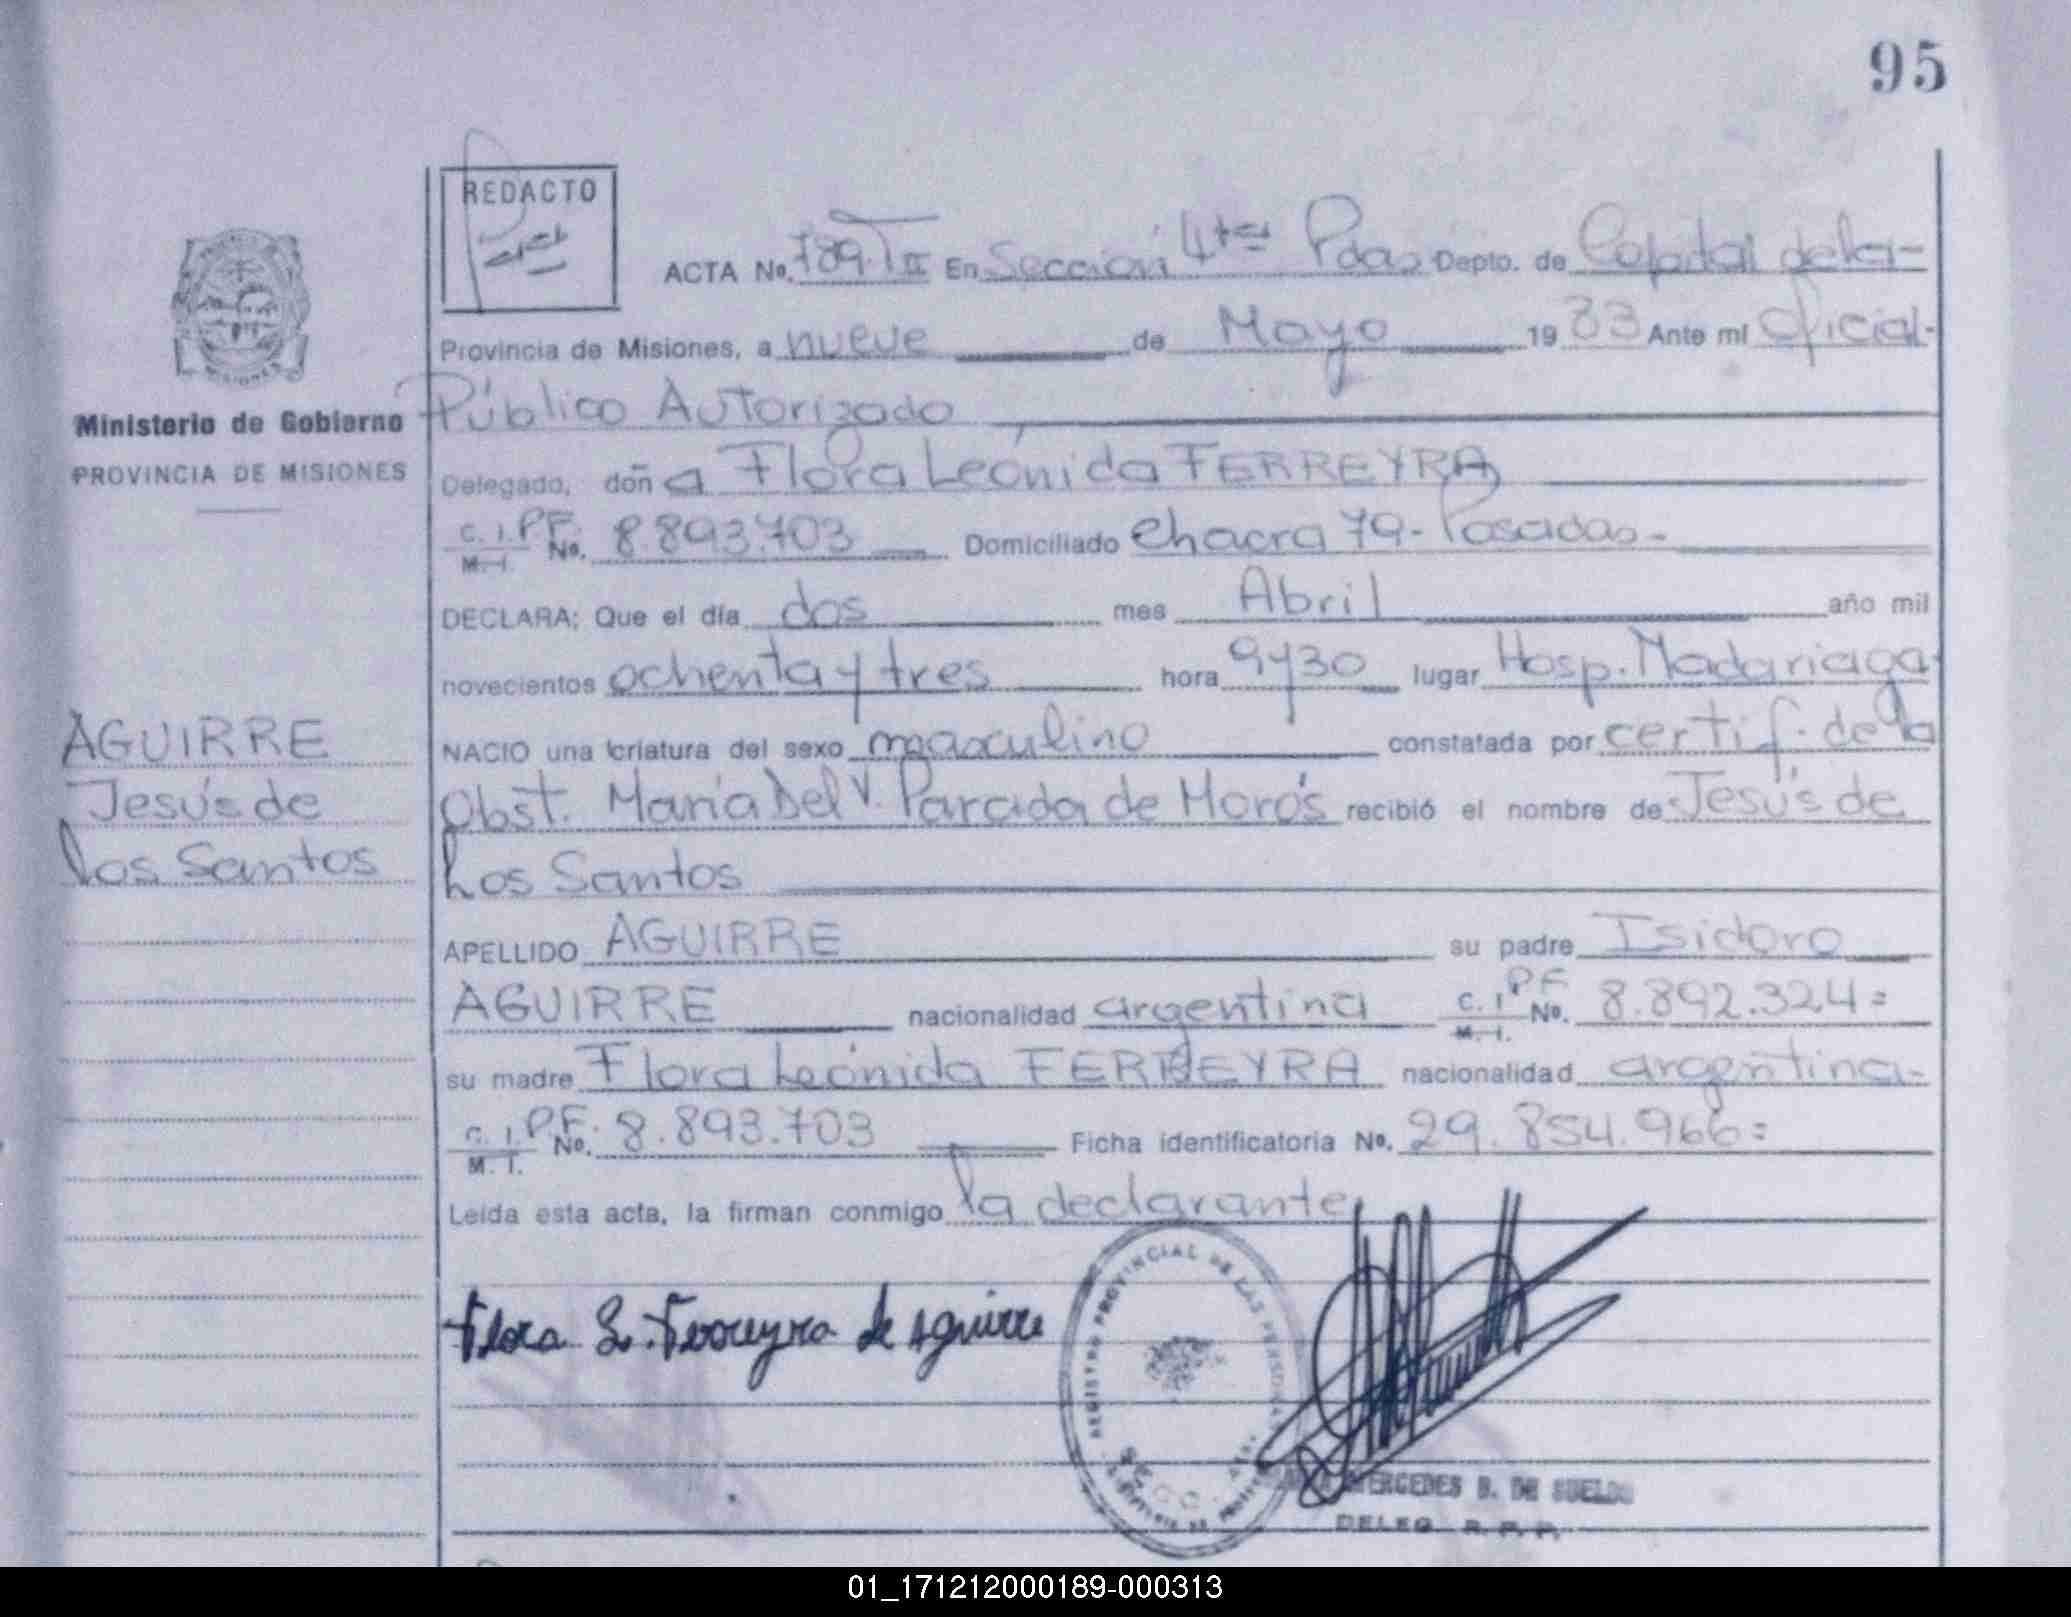 95
REDACTO
ACTA No. 789 T II En Sección 4ta Pdas Depto. de Capital de la-
Provincia de Misiones, a nueve de Mayo 1983 Ante mí Oficial-
Público Autorizado
Delegado, doña Flora Leónida FERREYRA
C. I. PF. No. 8.893.703 Domiciliado Chacra 79- Posadas.-
M. I.
DECLARA: Que el día dos mes Abril año mil
novecientos ochenta y tres hora 9y30 lugar Hosp. Madariaga
NACIO una criatura del sexo masculino constatada por certif. de la
Obst. María Del V. Parada de Morós recibió el nombre de Jesús de
Los Santos
APELLIDO AGUIRRE su padre Isidoro
AGUIRRE nacionalidad argentina C. I. PF No. 8.892.324=
M. I.
su madre Flora Leónida FERREYRA nacionalidad argentina-
C. I. PF. No. 8.893.703 Ficha identificatoria No. 29.854.966=
M. I.
Leída esta acta, la firman conmigo la declarante
Flora L. Ferreyra de Aguirre
REGISTRO PROVINCIAL DE LAS PERSONAS
MERCEDES B. DE SUELDO
DELEG. R. P. P.
MISIONES
Ministerio de Gobierno
PROVINCIA DE MISIONES
AGUIRRE
Jesús de
los Santos
01_171212000189-000313